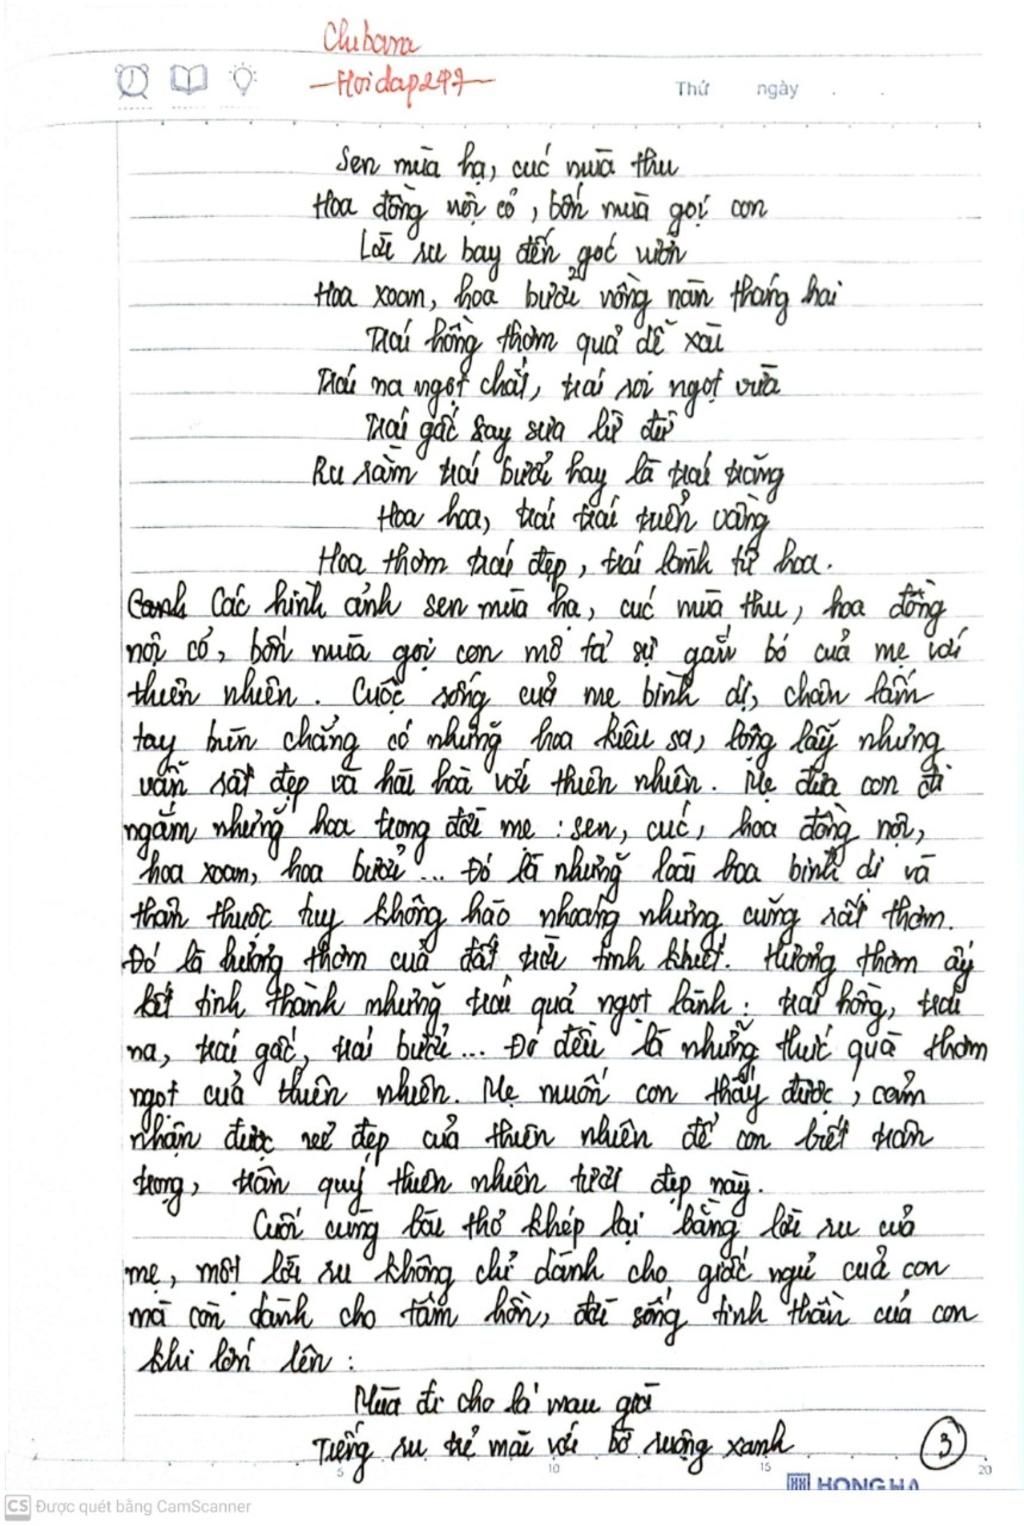 Chubora
-Hoidap247-
Thứ ngày . .
Sen mùa hạ, cúc mùa thu
Hoa đồng nội cỏ, bốn mùa gọi con
Lời ru bay đến góc vườn
Hoa xoan, hoa bưởi nồng nàn tháng hai
Trái hồng thơm quả dễ xài
Trái na ngọt chắt, trái roi ngọt vừa
Trái gấc say sưa lừ đừ
Ru rằm trái bưởi hay là trái trăng
Hoa hoa, trái trái tuển vàng
Hoa thơm trái đẹp, trái lành từ hoa.
Các hình ảnh sen mùa hạ, cúc mùa thu, hoa đồng
nội cỏ, bốn mùa gọi con mô tả sự gắn bó của mẹ với
thiên nhiên. Cuộc sống của mẹ bình dị, chân lấm
tay bùn chẳng có những hoa kiêu sa, lộng lẫy nhưng
vẫn rất đẹp và hài hoà với thiên nhiên. Mẹ đưa con đi
ngắm những hoa trong đời mẹ : sen, cúc, hoa đồng nội,
hoa xoan, hoa bưởi ... Đó là những loài hoa bình dị và
thân thuộc tuy không hào nhoáng nhưng cũng rất thơm.
Đó là hương thơm của đất trời tinh khiết. Hương thơm ấy
kết tinh thành những trái quả ngọt lành : trái hồng, trái
na, trái gấc, trái bưởi ... Đó đều là những thức quà thơm
ngọt của thiên nhiên. Mẹ muốn con thấy được, cảm
nhận được vẻ đẹp của thiên nhiên để con biết trân
trọng, trân quý thiên nhiên tươi đẹp này.
Cuối cùng bài thơ khép lại bằng lời ru của
mẹ, một lời ru không chỉ dành cho giấc ngủ của con
mà còn dành cho tâm hồn, đời sống tinh thần của con
khi lớn lên :
Mùa đi cho lá mau già
Tiếng ru trẻ mãi với bờ ruộng xanh
3
5 10 15 20
HONG HA
CS Được quét bằng CamScanner